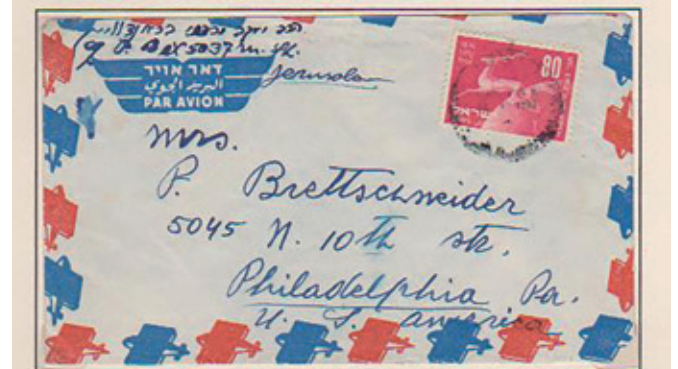 P. O. Box 5037
Jerusalem
דאר אויר
البريد الجوي
PAR AVION
80
ישראל
Mrs.
P. Brettschneider
5045 N. 10th str.
Philadelphia Pa.
U. S. America